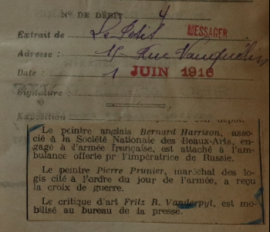 N° DE DÉBIT 4
Extrait de Le Petit MESSAGER
Adresse : 15 Rue Vauquelin
Date 1 JUIN 1916
Signature
Exposition
Le peintre anglais Bernard Harrison, asso-
cié à la Société Nationale des Beaux-Arts, en-
gagé à l'armée française, est attaché à l'am-
bulance offerte pr l'impératrice de Russie.
Le peintre Pierre Prunier, maréchal des lo-
gis cité à l'ordre du jour de l'armée, a reçu
la croix de guerre.
Le critique d'art Fritz R. Vanderpyl, est mo-
bilisé au bureau de la presse.